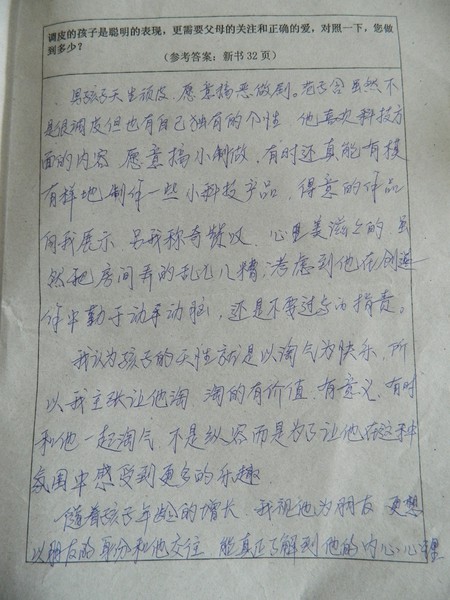 调皮的孩子是聪明的表现，更需要父母的关注和正确的爱，对照一下，您做
到多少？
（参考答案：新书32页）
男孩子天生顽皮，愿意搞恶做剧。老子含虽然不
是很调皮但也有自己独有的个性，他喜欢科技方
面的内容，愿意搞小制做，有时还真能有模
有样地制作一些小科技产品，得意的作品
向我展示，另我称奇赞叹，心里美滋滋的，虽
然把房间弄的乱七八糟，考虑到他在创造
中勤于动手动脑，还是不要过与的指责。
我认为孩子的天性就是以淘气为快乐，所
以我主张让他淘，淘的有价值，有意义，有时
和他一起淘气，不是纵容而是为了让他在这种
氛围中感受到更多的乐趣
随着孩子年龄的增长，我视他为朋友，更想
以朋友的身份和他交往，能真正了解到他的内心，心里